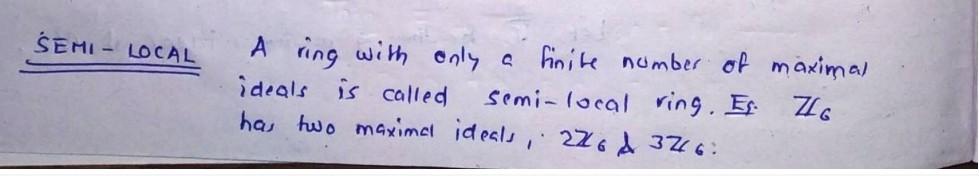 SEMI-LOCAL A ring with only a finite number of maximal
ideals is called semi-local ring. Eg. ℤ6
has two maximal ideals, 2ℤ6 & 3ℤ6: